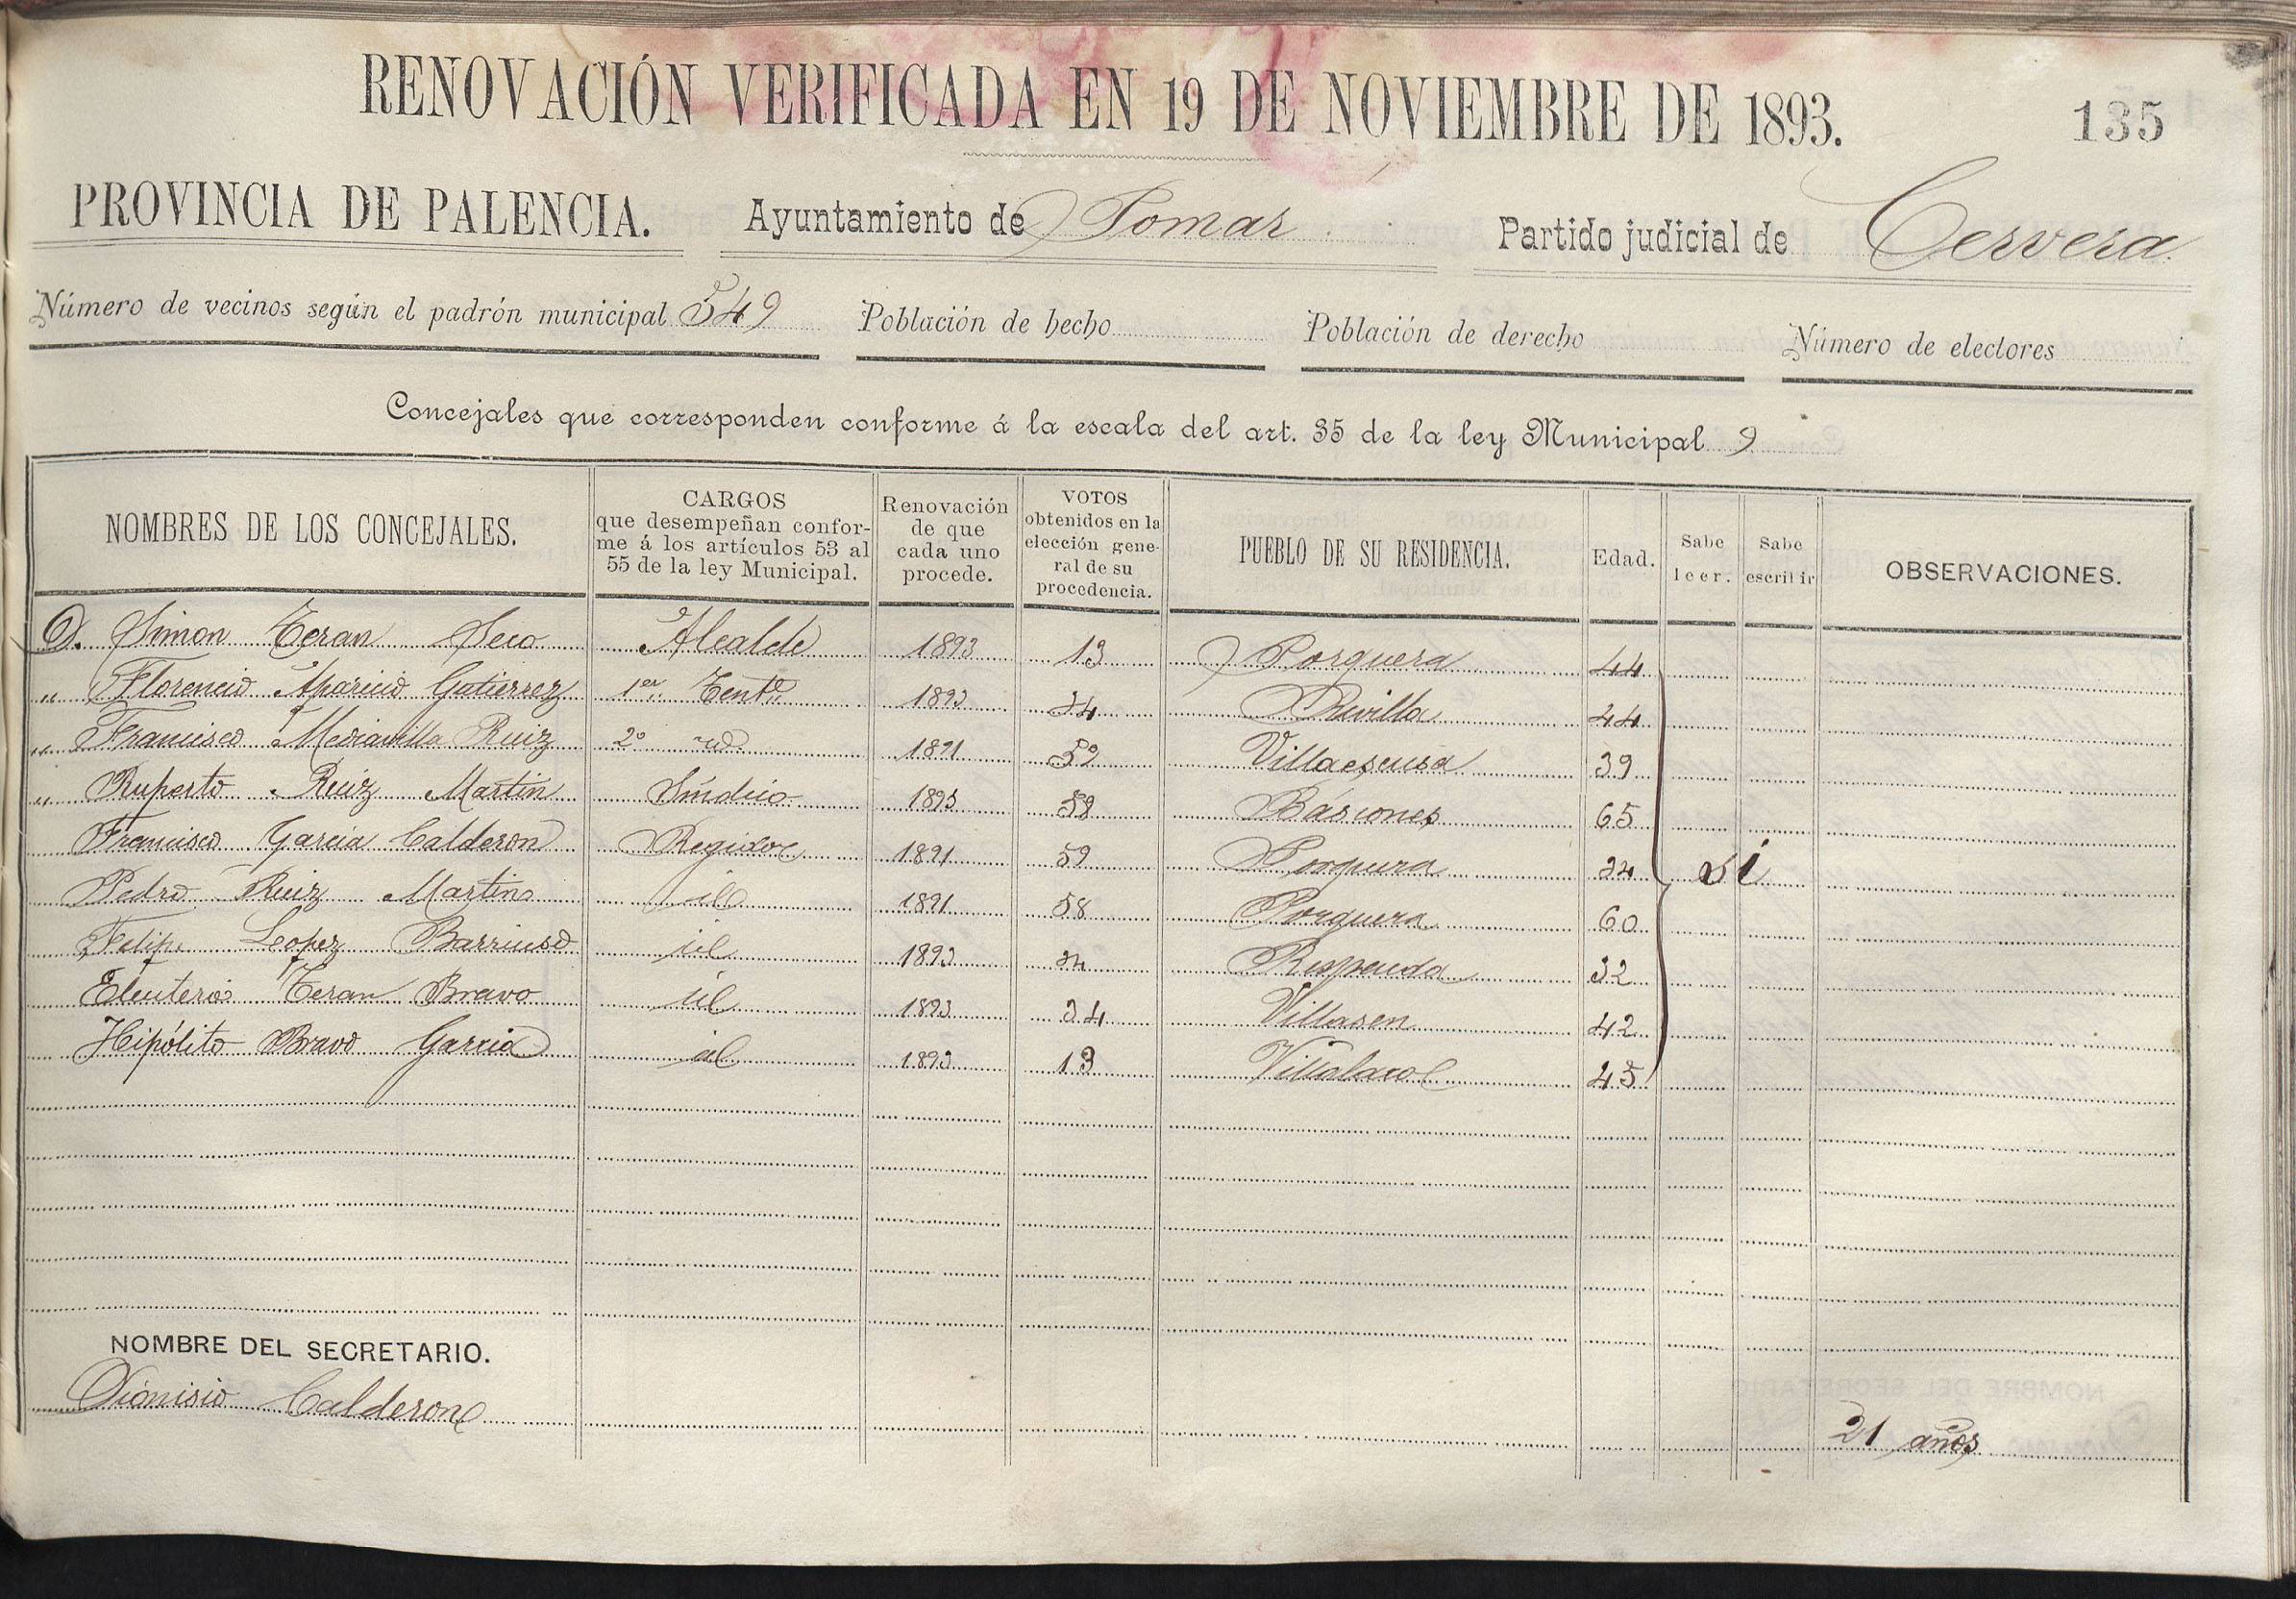 RENOVACIÓN VERIFICADA EN 19 DE NOVIEMBRE DE 1893. 135
PROVINCIA DE PALENCIA. Ayuntamiento de Pomar Partido judicial de Cervera
Número de vecinos según el padrón municipal 549 Población de hecho Población de derecho Número de electores
Concejales que corresponden conforme á la escala del art. 35 de la ley Municipal 9
NOMBRES DE LOS CONCEJALES. CARGOS que desempeñan conforme á los artículos 53 al 55 de la ley Municipal. Renovación de que cada uno procede. VOTOS obtenidos en la elección general de su procedencia. PUEBLO DE SU RESIDENCIA. Edad. Sabe leer. Sabe escribir OBSERVACIONES.
D. Simon Teran Seco Alcalde 1893 13 Porquera 44
„ Florencio Aparicio Gutierrez 1er Tente 1893 34 Revilla 44
„ Francisco Mediavilla Ruiz 2º id. 1891 52 Villaescusa 39
„ Ruperto Ruiz Martin Síndico 1893 58 Báscones 65
Francisco Garcia Calderon Regidor 1891 59 Porquera 34 si
Pedro Ruiz Martin id 1891 58 Porquera 60
Felipe Lopez Barriuso id 1893 34 Respenda 32
Eleuterio Teran Bravo id 1893 34 Villaren 42
Hipólito Bravo Garcia id 1893 13 Villalaco 45
NOMBRE DEL SECRETARIO.
Dionisio Calderon 21 años